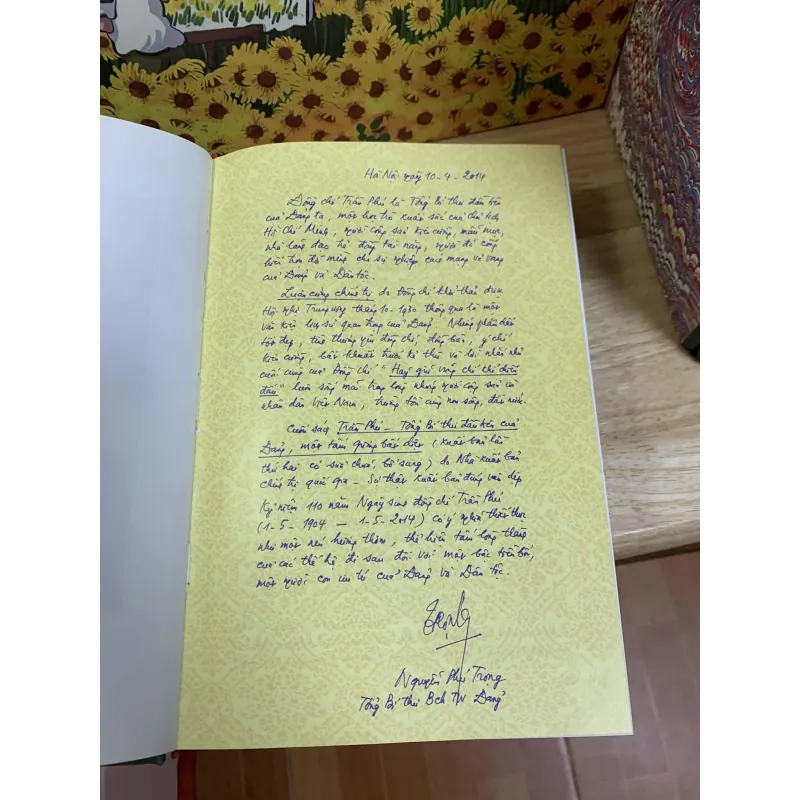 Hà Nội ngày 10-4-2014
Đồng chí Trần Phú là Tổng Bí thư đầu tiên
của Đảng ta, một học trò xuất sắc của Chủ tịch
Hồ Chí Minh, người cộng sản kiên cường, mẫu mực,
nhà lãnh đạo trẻ đầy tài năng, người đã cống
hiến trọn đời mình cho sự nghiệp cách mạng vẻ vang
của Đảng và Dân tộc.
Luận cương chính trị do Đồng chí khởi thảo được
Hội nghị Trung ương tháng 10-1930 thông qua là một
văn kiện lịch sử quan trọng của Đảng. Những phẩm chất
tốt đẹp, tình thương yêu đồng chí, đồng bào, ý chí
kiên cường, bất khuất trước kẻ thù và lời nhắn nhủ
cuối cùng của Đồng chí "Hãy giữ vững chí khí chiến
đấu" luôn sống mãi trong lòng những người cộng sản và
nhân dân Việt Nam, trường tồn cùng non sông, đất nước.
Cuốn sách Trần Phú - Tổng Bí thư đầu tiên của
Đảng, một tấm gương bất diệt (xuất bản lần
thứ hai có sửa chữa, bổ sung) do Nhà xuất bản
Chính trị quốc gia - Sự thật xuất bản đúng vào dịp
Kỷ niệm 110 năm Ngày sinh đồng chí Trần Phú
(1-5-1904 — 1-5-2014) có ý nghĩa thiết thực
như một nén hương thơm, thể hiện tấm lòng thành
của các thế hệ đi sau đối với một bậc tiền bối,
một người con ưu tú của Đảng và Dân tộc.
Trọng
Nguyễn Phú Trọng
Tổng Bí thư BCH TW Đảng